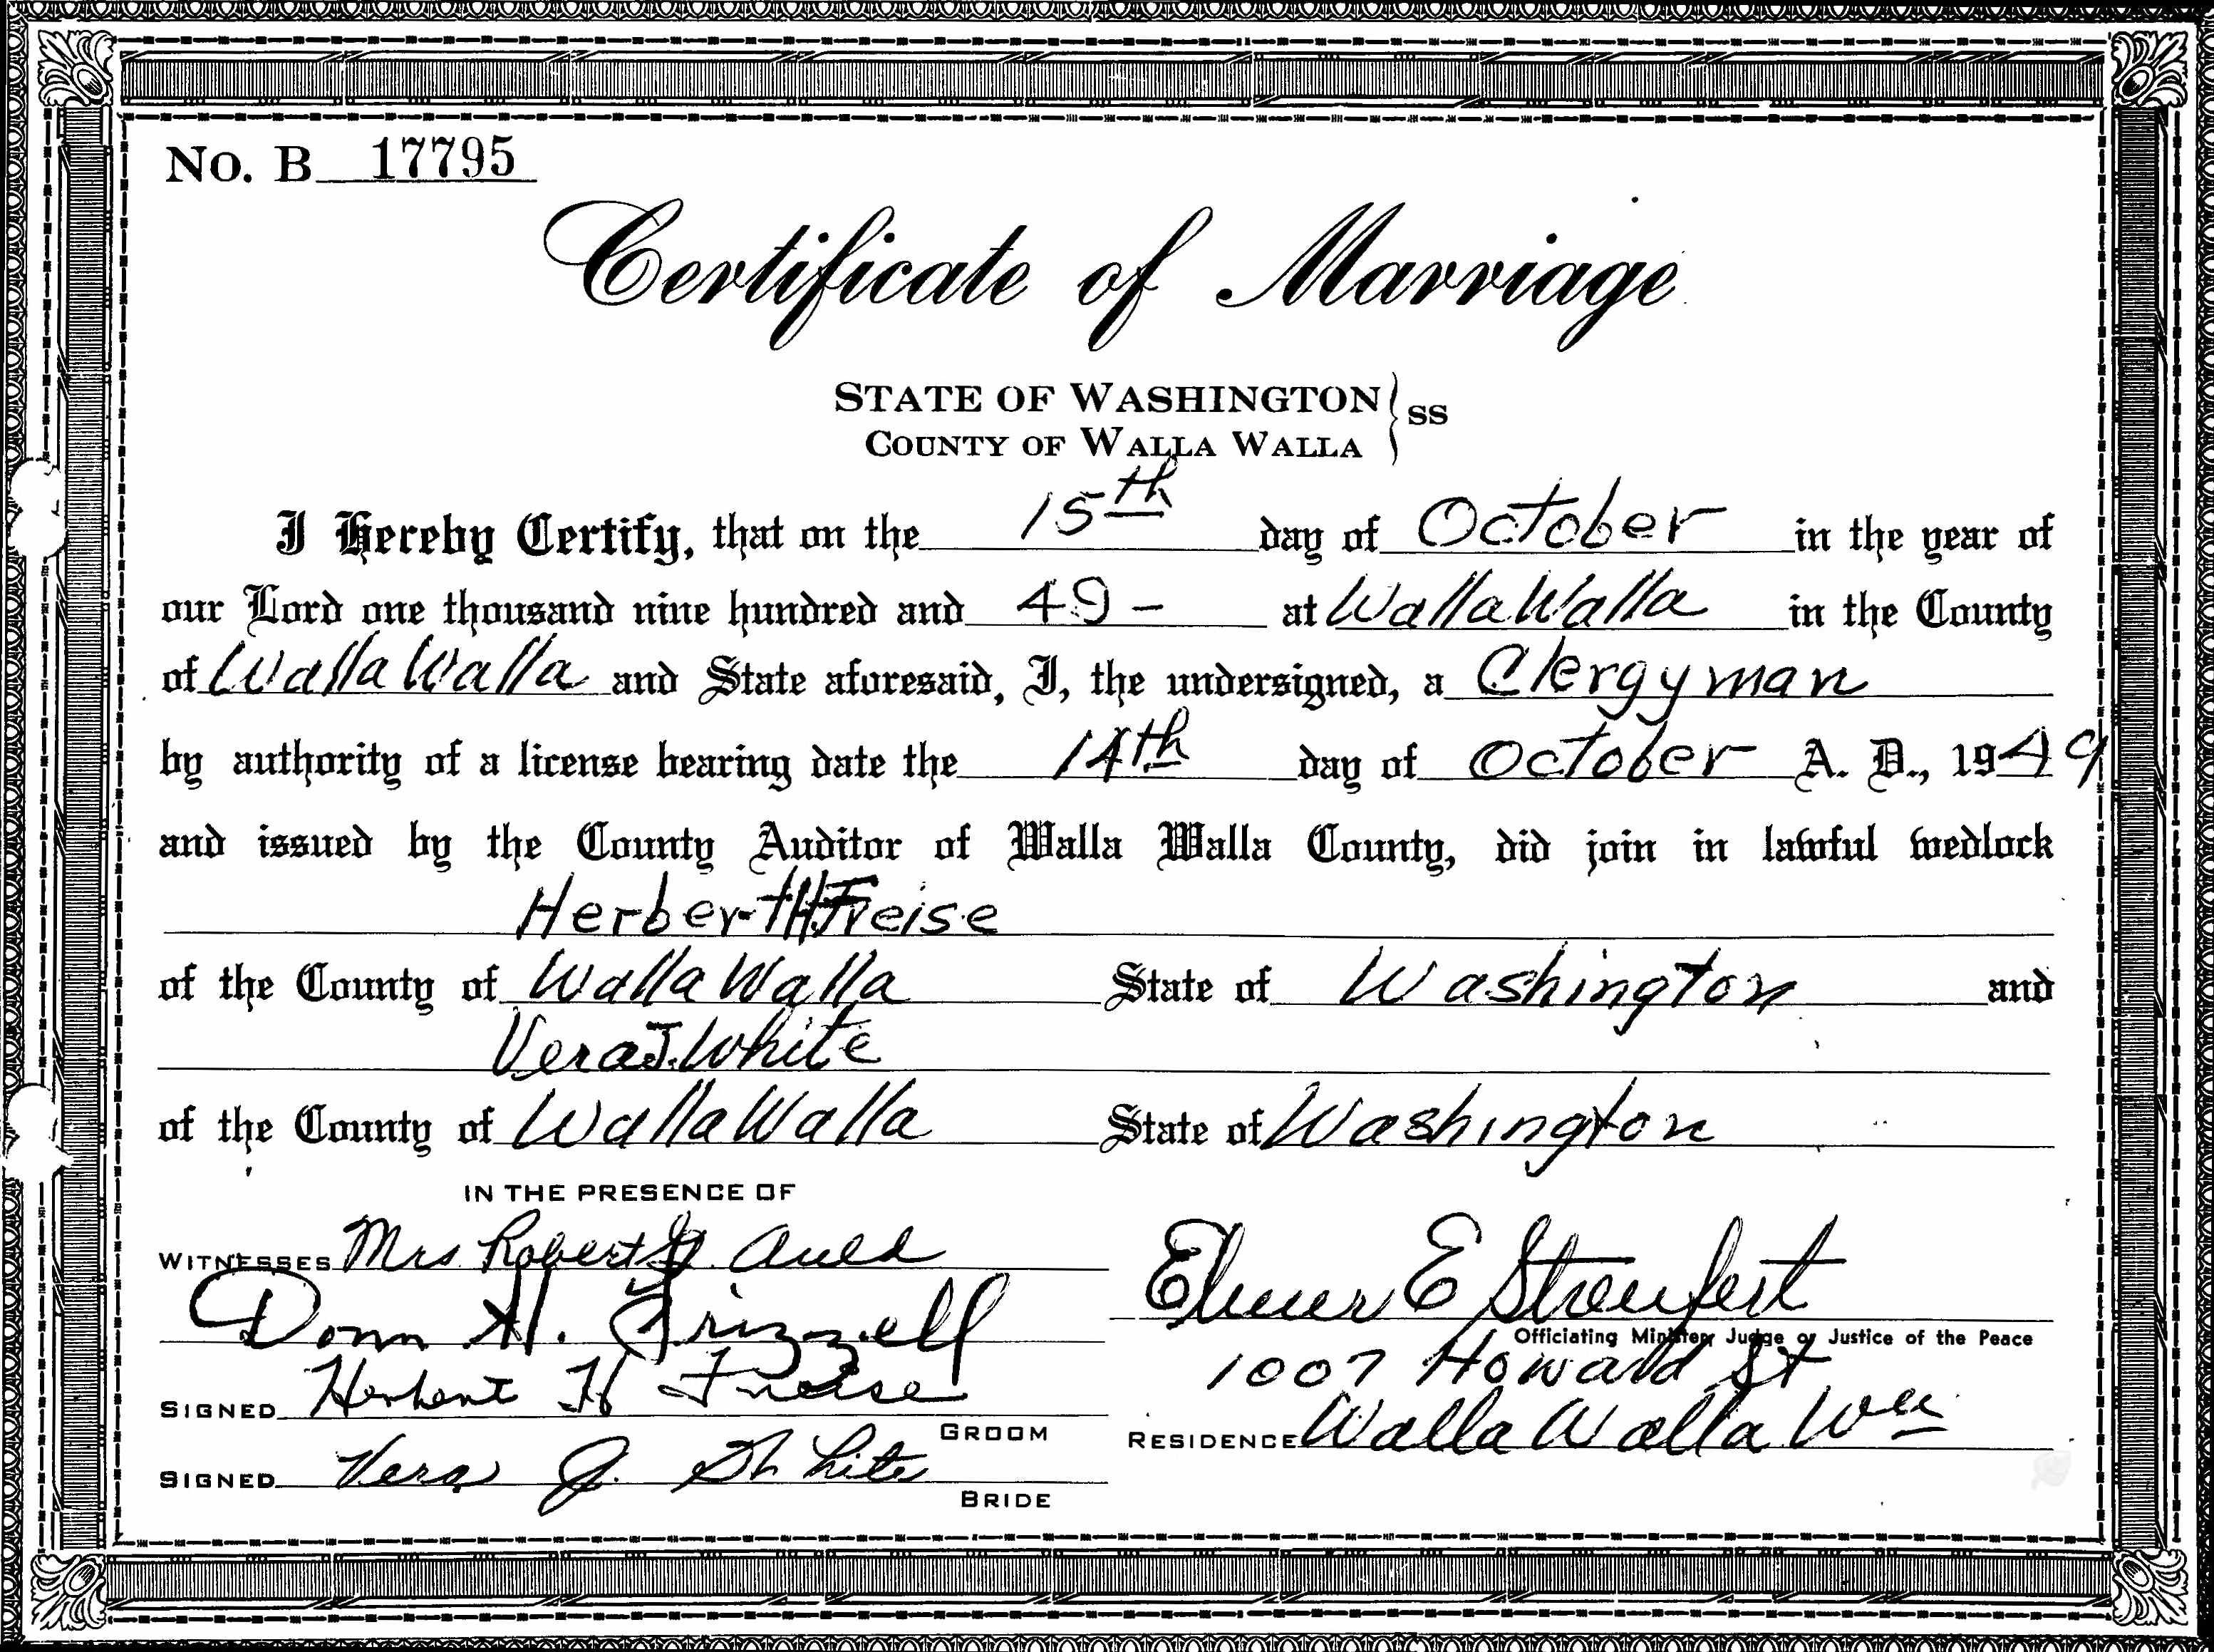 No. B 17795
Certificate of Marriage
STATE OF WASHINGTON } ss
COUNTY OF WALLA WALLA
I Hereby Certify, that on the 15th day of October in the year of
our Lord one thousand nine hundred and 49 - at Walla Walla in the County
of Walla Walla and State aforesaid, I, the undersigned, a Clergyman
by authority of a license bearing date the 14th day of October A. D., 1949
and issued by the County Auditor of Walla Walla County, did join in lawful wedlock
Herbert H Freise
of the County of Walla Walla State of Washington and
Vera J. White
of the County of Walla Walla State of Washington
IN THE PRESENCE OF
WITNESSES Mrs Robert Auld
Elmer E Streufert
Donn H. Frizzell
Officiating Minister, Judge or Justice of the Peace
1007 Howard St
SIGNED Herbert H Freise
GROOM
RESIDENCE Walla Walla Wn
SIGNED Vera J. White
BRIDE